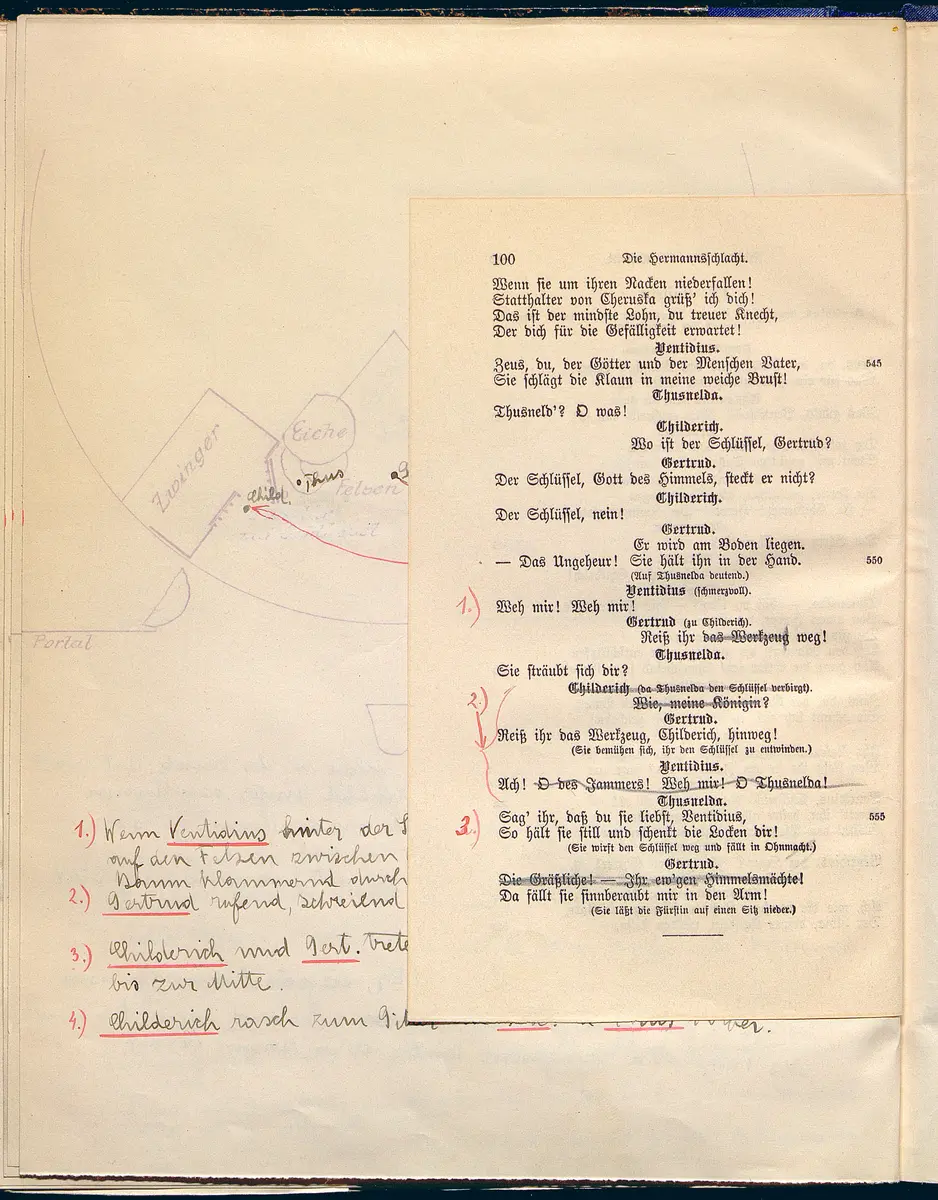 100 Die Hermannsschlacht.
Wenn sie um ihren Nacken niederfallen!
Statthalter von Cheruska grüß' ich dich!
Das ist der mindste Lohn, du treuer Knecht,
Der dich für die Gefälligkeit erwartet!
Ventidius.
Zeus, du, der Götter und der Menschen Vater, 545
Sie schlägt die Klaun in meine weiche Brust!
Thusnelda.
Thusneld'? O was!
Childerich.
Wo ist der Schlüssel, Gertrud?
Gertrud.
Der Schlüssel, Gott des Himmels, steckt er nicht?
Childerich.
Der Schlüssel, nein!
Gertrud.
Er wird am Boden liegen.
— Das Ungeheur! Sie hält ihn in der Hand. 550
(Auf Thusnelda deutend.)
Ventidius (schmerzvoll).
1.) Weh mir! Weh mir!
Gertrud (zu Childerich).
Reiß ihr das Werkzeug weg!
Thusnelda.
Sie sträubt sich dir?
Childerich (da Thusnelda den Schlüssel verbirgt).
2.) Wie, meine Königin?
Gertrud.
Reiß ihr das Werkzeug, Childerich, hinweg!
(Sie bemühen sich, ihr den Schlüssel zu entwinden.)
Ventidius.
Ach! O des Jammers! Weh mir! O Thusnelda!
Thusnelda.
3.) Sag' ihr, daß du sie liebst, Ventidius, 555
So hält sie still und schenkt die Locken dir!
(Sie wirft den Schlüssel weg und fällt in Ohnmacht.)
Gertrud.
Die Gräßliche! — Ihr ew'gen Himmelsmächte!
Da fällt sie sinnberaubt mir in den Arm!
(Sie läßt die Fürstin auf einen Sitz nieder.)
Zwinger
Eiche
Thus
Child.
Felsen
Portal
1.) Wenn Ventidius hinter der
auf den Felsen zwischen
Baum klammernd durch
2.) Gertrud rufend, schreiend
3.) Childerich und Gert. trete
bis zur Mitte.
4.) Childerich rasch zum